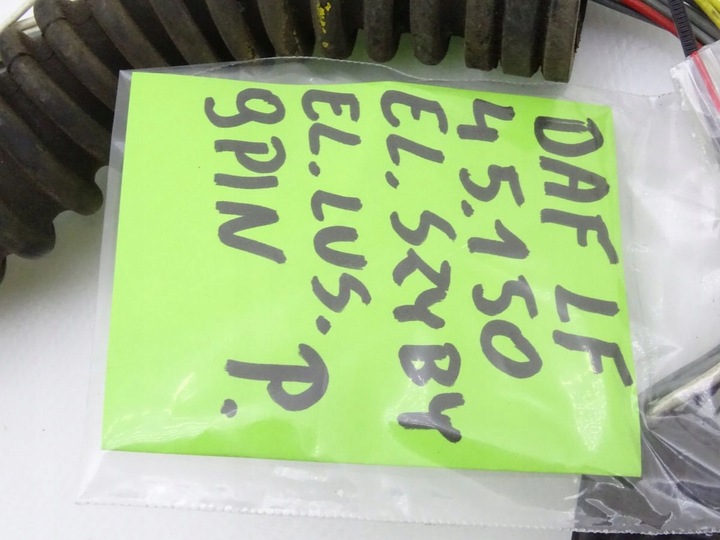 DAF LF
45.150
EL. SZYBY
EL. LUS.
9PIN P.